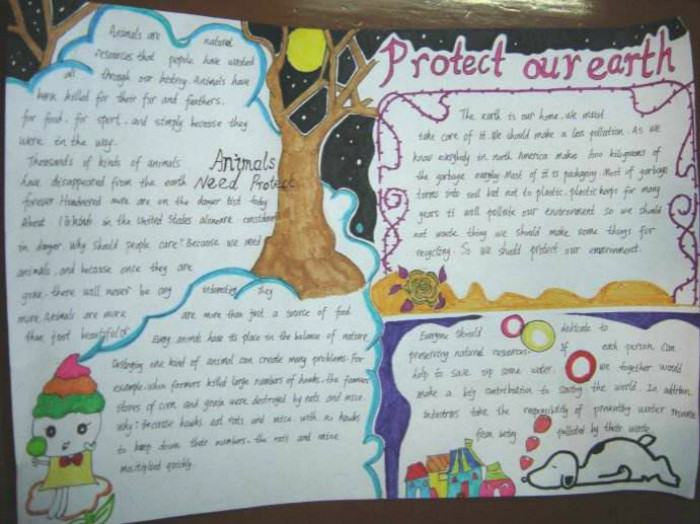 Animals are natural
resources that people have wasted
all through our history. Animals have
been killed for their fur and feathers,
for food, for sport, and simply because they
were in the way.
Thousands of kinds of animals
have disappeared from the earth
forever. Hundreds more are on the danger list today.
About in the United States alone are considered
in danger. Why should people care? Because we need
animals, and because once they are
gone, there will never be any
more. Animals are more
than just beautiful or
interesting, they
are more than just a source of food.
Every animals have its place in the balance of nature.
Destroying one kind of animal can create many problems. For
example, when farmers killed large numbers of hawks, the farmers
stores of corn and grain were destroyed by rats and mice.
Why? Because hawks eat rats and mice with no hawks
to keep down their numbers, the rats and mice
multiplied quickly.
Animals
Need Protect
Protect our earth
The earth is our home. We must
take care of it. We should make a less pollution. As we
know everybody in north America makes kilograms of
the garbage Most of it is packaging. Most of garbage
turns into soil but not to plastic. plastic keeps for many
years it will pollute our environment so we should
not waste thing we should make some things for
recycling. So we should protect our environment.
Everyone should dedicate to
preserving natural resources. If each person can
help to save up some water. we together would
make a big contribution to saving the world. In addition,
industries take the responsibility of preventing water
from being polluted by their waste.